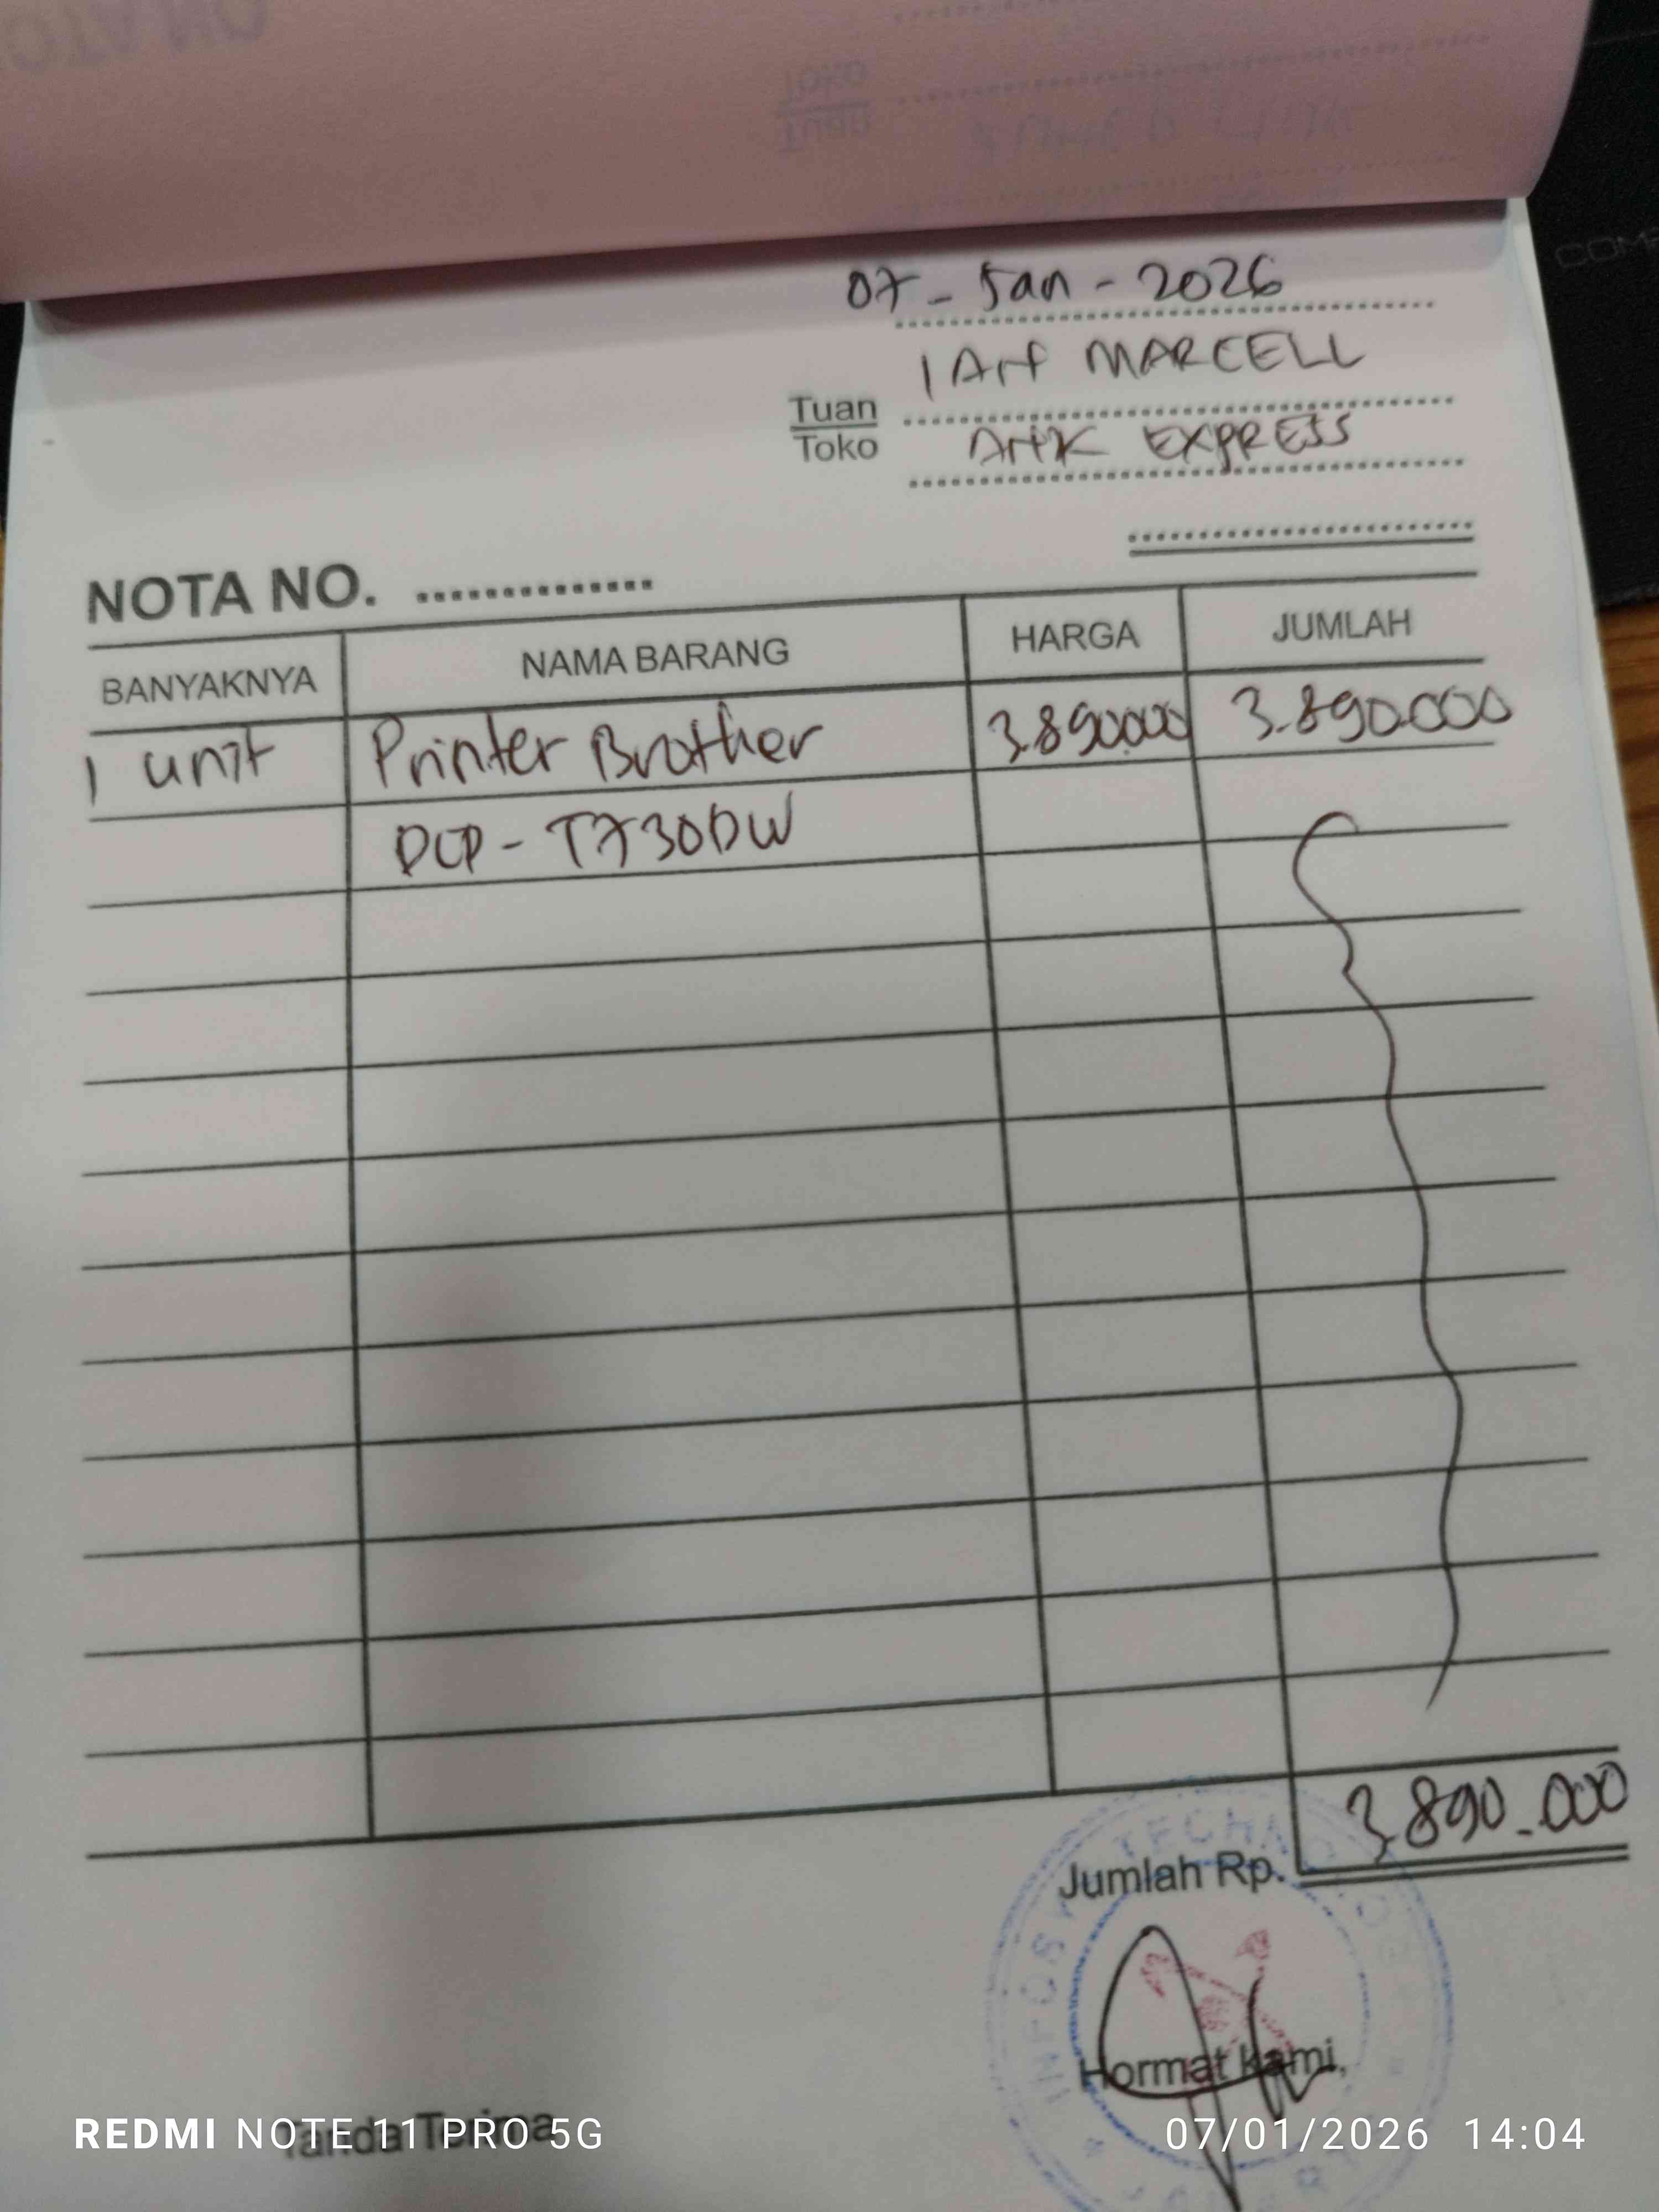 07 - Jan - 2026
Tuan
MARCELL
Toko
EXPRESS
NOTA NO. ..............
BANYAKNYA NAMA BARANG HARGA JUMLAH
1 unit Printer Brother 3.890.000 3.890.000
DCP - T730DW
Jumlah Rp. 3.890.000
Hormat kami,
Tanda Terima
REDMI NOTE 11 PRO 5G
07/01/2026 14:04